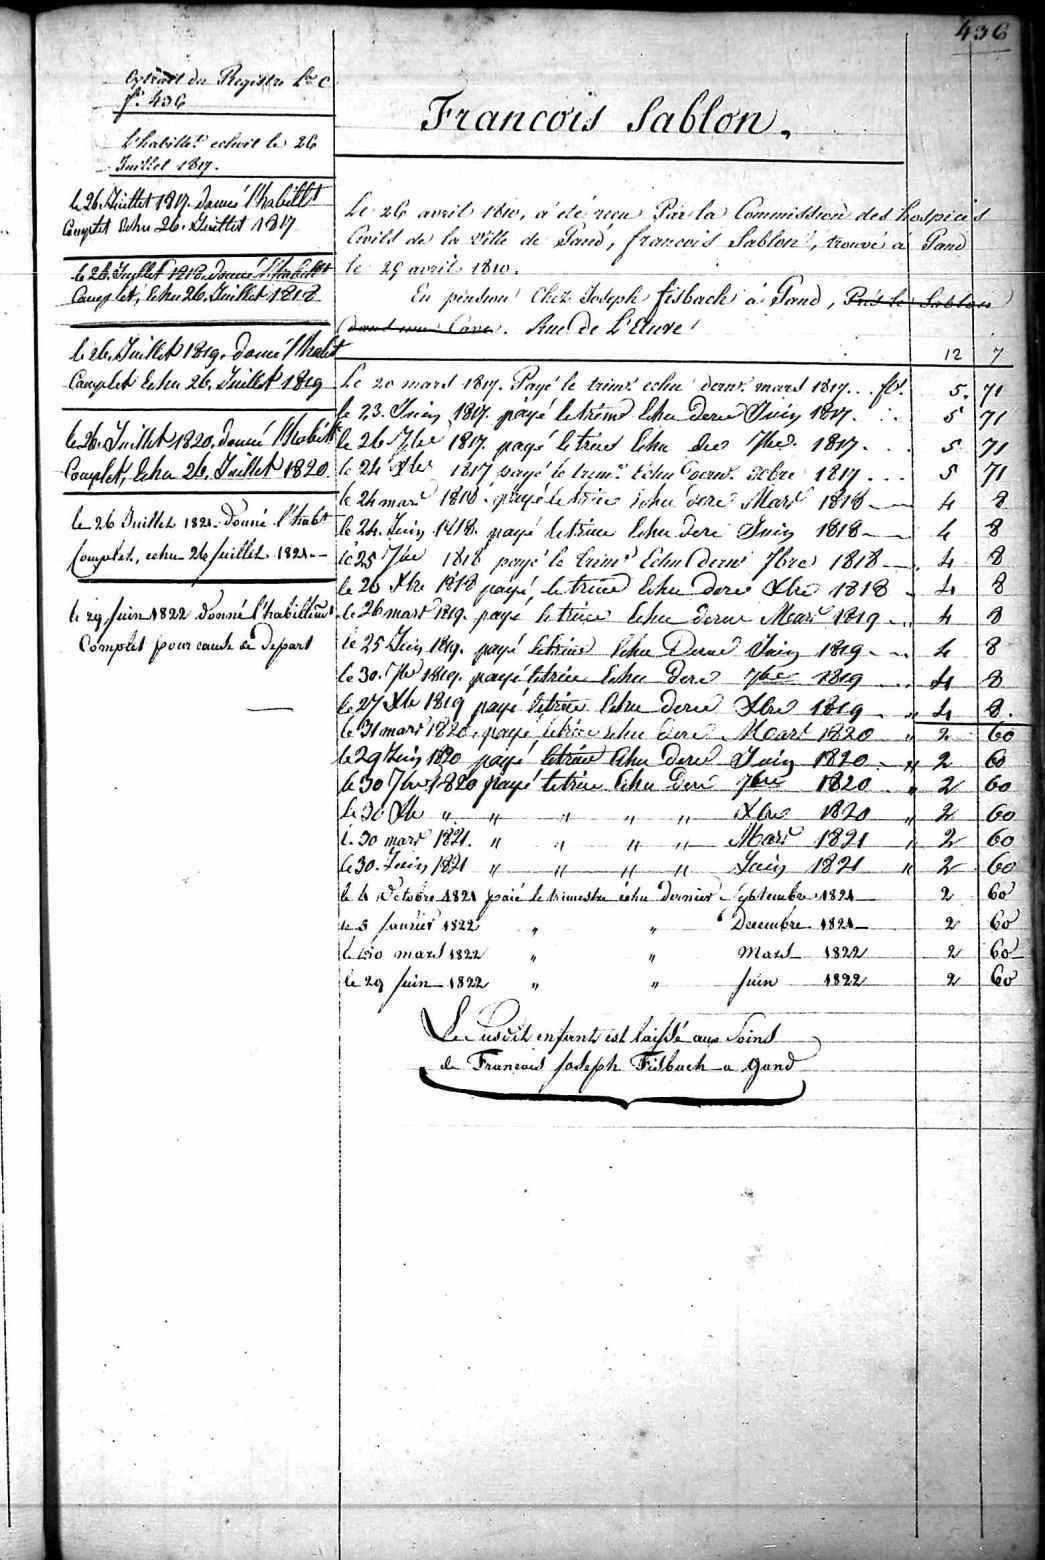 436
Extrait du Registre L.re C
f.o 436
l'habillt echoit le 26
Juillet 1817.
le 26. Juillet 1817. donné l'habillt
Complet Echu 26. Juillet 1817
le 26. Juillet 1818. donné l'habillt
Complet, Echu 26. Juillet 1818
le 26. Juillet 1819. donné l'habt
Complet Echu 26. Juillet 1819
le 26. Juillet 1820. donné l'habillt
Complet, Echu 26. Juillet 1820
le 26 Juillet 1821. donné l'habt
Complet, echu 26 Juillet 1821
le 29 Juin 1822 donné l'habillemt
Complet pour cause de depart
François Sablon.
Le 26 avril 1810, a été recu Par la Commission des hospices
Civils de la Ville de Gand, françois Sablon, trouvé a Gand
le 25 avril 1810.
En pension Chez Joseph fisbach à Gand, Près le Sablon
dans une Cave. Rue de L'Etuve
12 7
Le 20 mars 1817. Payé le trimr echu dernr mars 1817... fls. 5. 71
le 23. Juin 1817. payé le trime Echu derr Juin 1817. 5 71
le 26 7bre 1817. payé le trime Echu der 7bre 1817. 5 71
le 24 Xbre 1817 payé le trime Echu dernr Xbre 1817 5 71
le 24 mars 1818. payé le trime echu derr Mars 1818 4 8
le 24. Juin 1818. payé le trime Echu derr Juin 1818 4 8
le 25 7bre 1818 payé le trime Echu dernr 7bre 1818 4 8
le 26 Xbre 1818 payé le trime Echu derr Xbre 1818 4 8
le 26 mars 1819. payé le trime Echu dernr Mars 1819 4 8
le 25 Juin 1819. payé le trime Echu Dernr Juin 1819 4 8
le 30. 7bre 1819. payé le trime Echu derr 7bre 1819 4 8
le 27 Xbre 1819 payé le trime Echu derr Xbre 1819 4 8.
le 31 mars 1820. payé le trime echu derr Mars 1820 " 2 60
le 29 Juin 1820 payé le trime Echu derr Juin 1820 " 2 60
le 30 7bre 1820 payé le trime Echu derr 7bre 1820 " 2 60
le 30 Xbre " " " " " Xbre 1820 " 2 60
le 30 mars 1821. " " " " Mars 1821 " 2 60
le 30. Juin 1821 " " " " Juin 1821 " 2 60
le 4 Octobre 1821 paié le trimestre échu dernier Septembre 1821 2 60
le 5 Janvier 1822 " " Decembre 1821 2 60
le 30 mars 1822 " " Mars 1822 2 60
le 29 Juin 1822 " " Juin 1822 2 60
Le Susdit enfant est laissé aux Soins
de Francois Joseph Fisbach a Gand